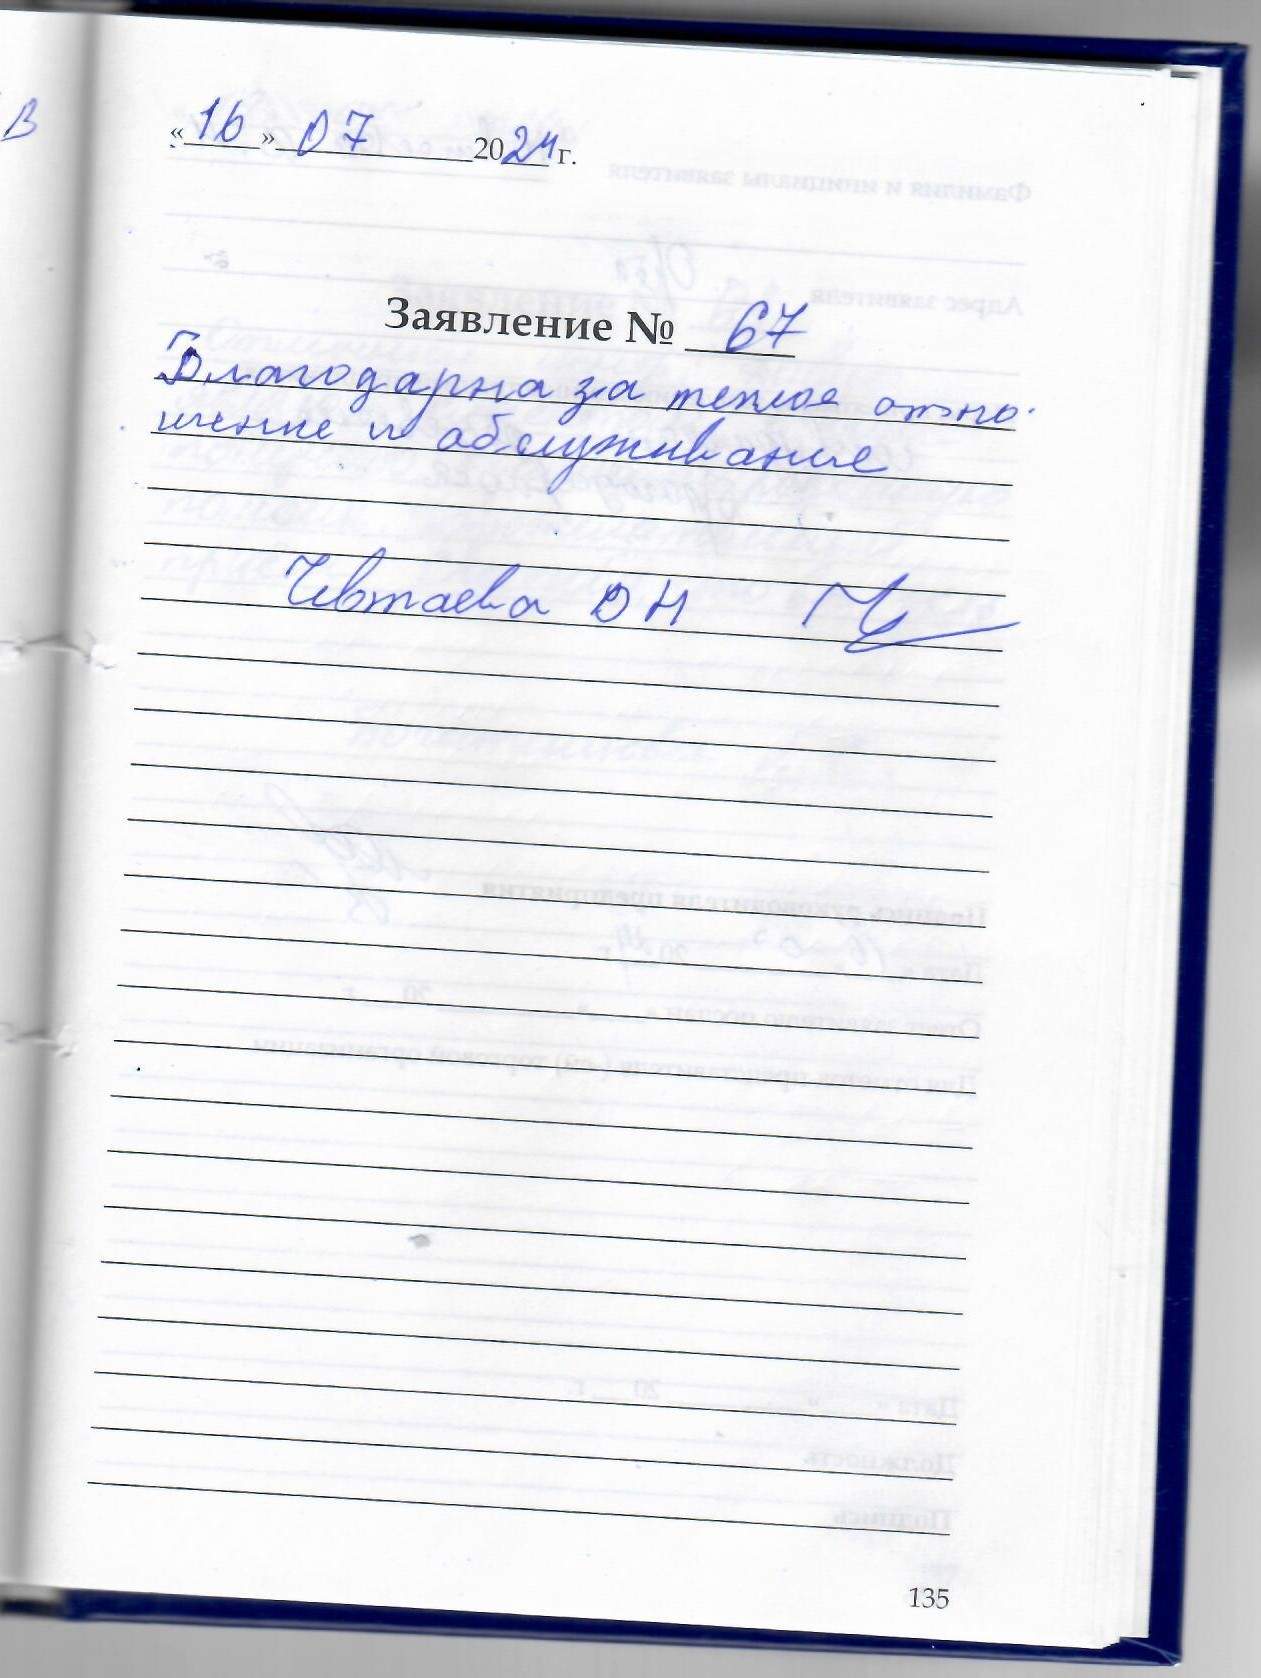 В
«16» 07 2024 г.
Заявление № 67
Благодарна за теплое отно-
шение и обслуживание
Чевтаева О Н
135